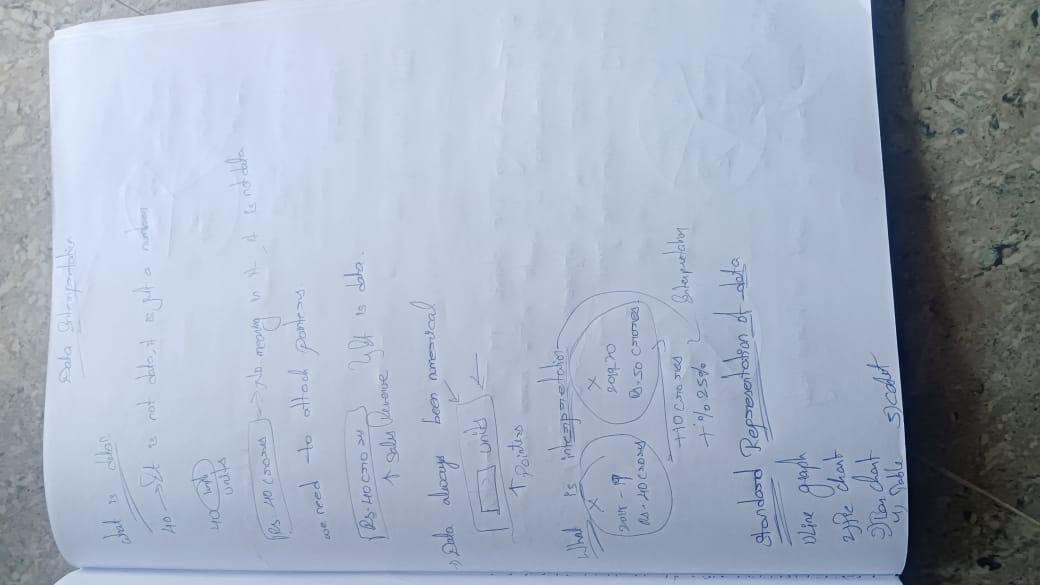 Data Interpretation
What is data
40 -> It is not data, it is just a number
40
units
Rs. 40 crores -> No meaning in it, it is not data
we need to attach pointers
Rs. 40 crores It is data.
↑ Sales Revenue
-> Data always been numerical
units
↑ Pointers
What is interpretation
X X
2018-19 2019-20
Rs. 40 crores Rs. 50 crores
+10 crores Interpretation
+ % 25%
Standard Representation of data
1) Line graph
2) Pie chart
3) Bar chart
4) Table